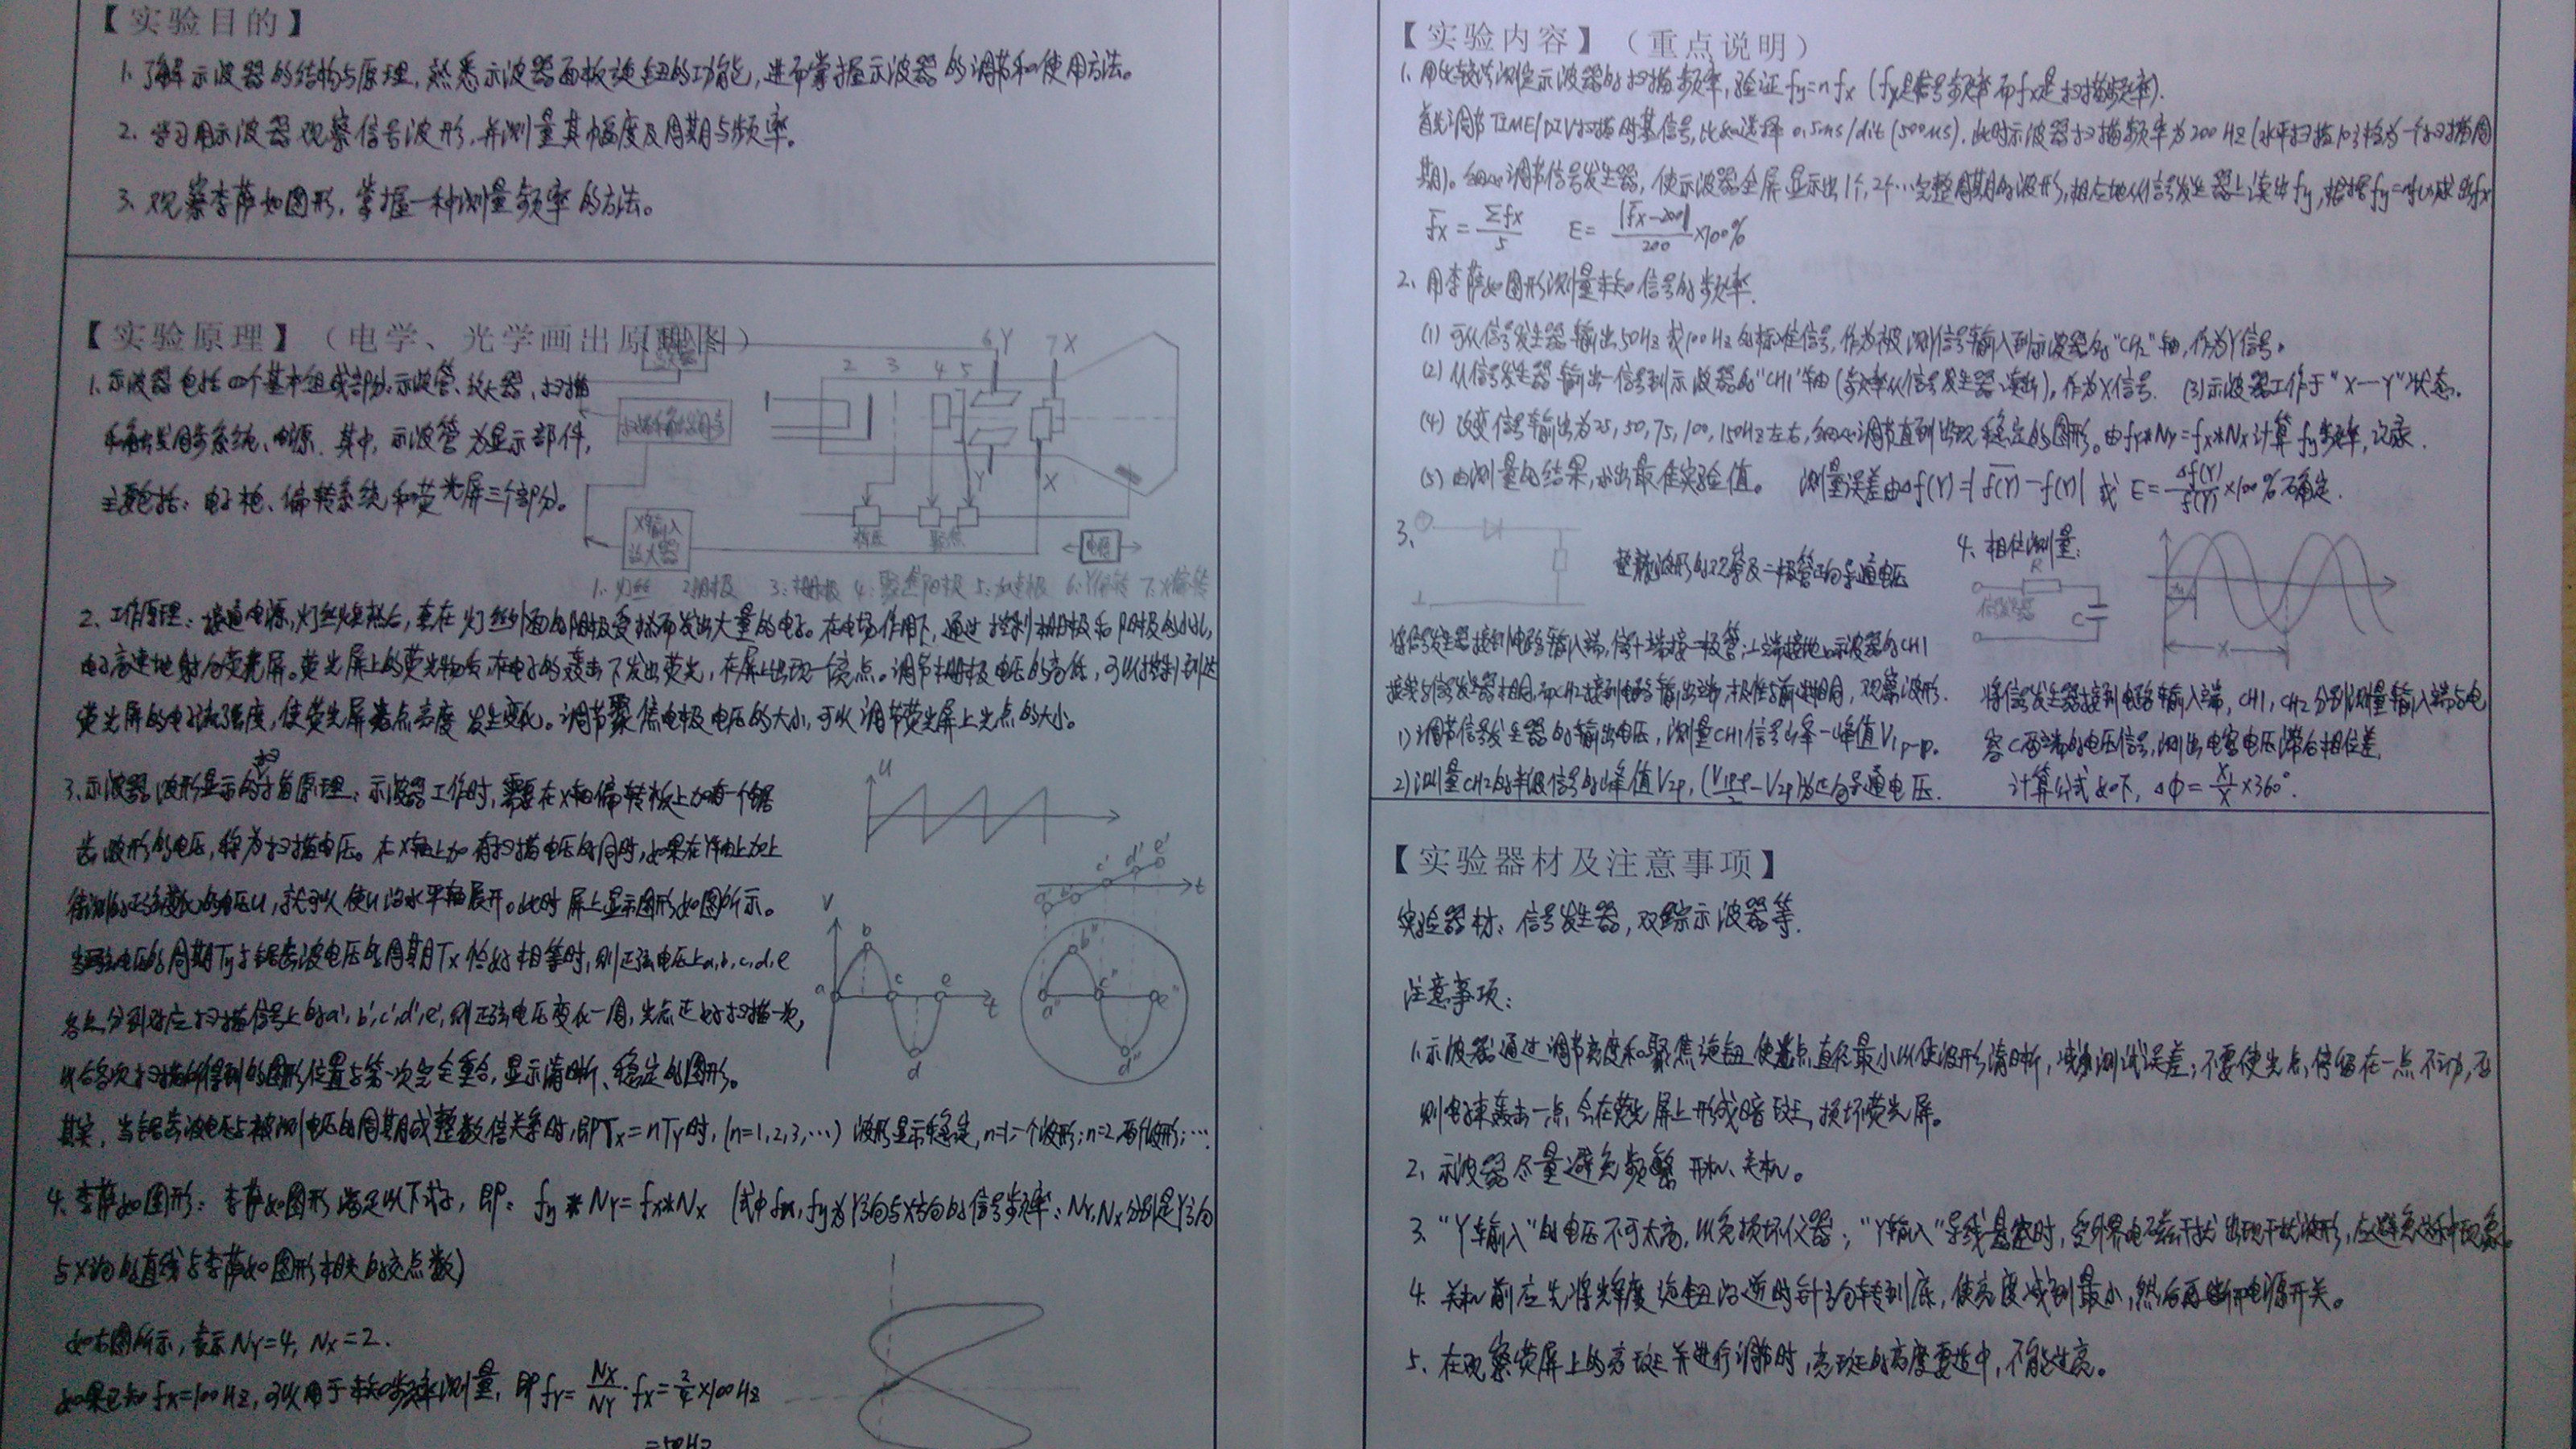 【实验目的】
1. 了解示波器的结构与原理,熟悉示波器面板旋钮的功能,进而掌握示波器的调节和使用方法。
2. 学习用示波器观察信号波形,并测量其幅度及周期与频率。
3. 观察李萨如图形,掌握一种测量频率的方法。
【实验原理】(电学、光学画出原理图)
1. 示波器包括四个基本组成部分:示波管、放大器、扫描
和触发同步系统、电源. 其中,示波管为显示部件,
主要包括:电子枪、偏转系统和荧光屏三个部分。
6 Y 7 X
2 3 4 5
1
Y X
X输入
放大器
辉度 聚焦 电源
1:灯丝 2:阴极 3:栅极 4:聚焦阳极 5:加速极 6:Y偏转 7:X偏转
2、工作原理:接通电源,灯丝烧热后,套在灯丝外面的阴极受热而发出大量的电子。在电场作用下,通过控制栅极和阳极的小孔,
电子高速地射向荧光屏。荧光屏上的荧光物质,在电子的轰击下发出荧光,在屏上出现一个亮点。调节栅极电压的高低,可以控制到达
荧光屏的电子流强度,使荧光屏光点亮度发生变化。调节聚焦电极电压的大小,可以调节荧光屏上光点的大小。
3. 示波器波形显示的扫描原理:示波器工作时,需要在X轴偏转板上加有一个锯
齿波形的电压,称为扫描电压。在X轴上加有扫描电压的同时,如果在Y轴上加上
待测的正弦变化的电压u,就可以使u沿水平轴展开。此时屏上显示图形如图所示。
当正弦电压的周期Ty与锯齿波电压的周期Tx恰好相等时,则正弦电压上a,b,c,d,e
各点分别对应扫描信号上的a',b',c',d',e',则正弦电压变化一周,光点正好扫描一次,
以后各次扫描所得到的图形位置与第一次完全重合,显示清晰、稳定的图形。
其实,当锯齿波电压与被测电压的周期成整数倍关系时,即Tx=nTy时,(n=1,2,3,…) 波形显示稳定,n=1,一个波形;n=2,两个波形;…
u
c' d' e'
t
V
a b c d e t
a" b" c" d" e"
4. 李萨如图形:李萨如图形满足以下式子,即:fy*Ny=fx*Nx (式中fx,fy为Y方向与X方向的信号频率;Ny,Nx分别是Y方向
与X方向的直线与李萨如图形相交的交点数)
如右图所示,表示Ny=4, Nx=2.
如果已知fx=100Hz,可以用于未知频率测量,即fy=Nx/Ny·fx=2/4×100Hz
=50Hz
【实验内容】(重点说明)
1. 用比较法测定示波器的扫描频率,验证fy=nfx (fy是信号频率而fx是扫描频率).
首先调节TIME/DIV扫描时基信号,比如选择0.5ms/dit(500us). 此时示波器扫描频率为200Hz(水平扫描10格为一个扫描周
期)。细心调节信号发生器,使示波器全屏显示出1个,2个…完整周期的波形,相应地从信号发生器上读出fy,根据fy=nfx求出fx
f̄x=Σfx/5 E=|f̄x-200|/200×100%
2、用李萨如图形测量未知信号的频率.
(1) 可从信号发生器输出50Hz或100Hz的标准信号,作为被测信号输入到示波器的"CH2"轴,作为Y信号。
(2) 从信号发生器输出一信号到示波器的"CH1"轴(频率从信号发生器读出),作为X信号. (3)示波器工作于"X—Y"状态.
(4) 改变信号输出为25,50,75,100,150Hz左右,细心调节直到出现稳定的图形。由fy*Ny=fx*Nx计算fy频率,记录.
(5) 由测量的结果,求出最佳实验值。 测量误差由Δf(Y)=|f̄(Y)-f(Y)| 或 E=Δf(Y)/f(Y)×100%确定.
3、
整流波形的观察及二极管正向导通电压
将信号发生器接到电路输入端,
接线与信号发生器相同,而CH2接到电路输出端,极性与前者相同,观察波形.
1) 调节信号发生器的输出电压,测量CH1信号峰-峰值V1p-p.
2) 测量CH2的半波信号的峰值V2p, (V1p-p/2-V2p)为正向导通电压.
4、相位测量:
R
信号发生器
C
X
将信号发生器接到电路输入端,CH1,CH2分别测量输入端与电
容C两端的电压信号,测出电容电压滞后相位差.
计算公式如下, Δφ=X1/X×360°.
【实验器材及注意事项】
实验器材:信号发生器,双踪示波器等.
注意事项:
1. 示波器通过调节亮度和聚焦旋钮使光点直径最小以使波形清晰,减小测试误差;不要使光点停留在一点不动,否
则电子束轰击一点,会在荧光屏上形成暗斑,损坏荧光屏。
2、示波器尽量避免频繁开机、关机。
3. "Y输入"的电压不可太高,以免损坏仪器;"Y输入"导线悬空时,受外界电磁干扰出现干扰波形,应避免这种现象。
4. 关机前应先将辉度旋钮沿逆时针方向转到底,使亮度减到最小,然后再断开电源开关。
5. 在观察荧屏上的亮斑并进行调节时,亮斑的亮度要适中,不能过亮。